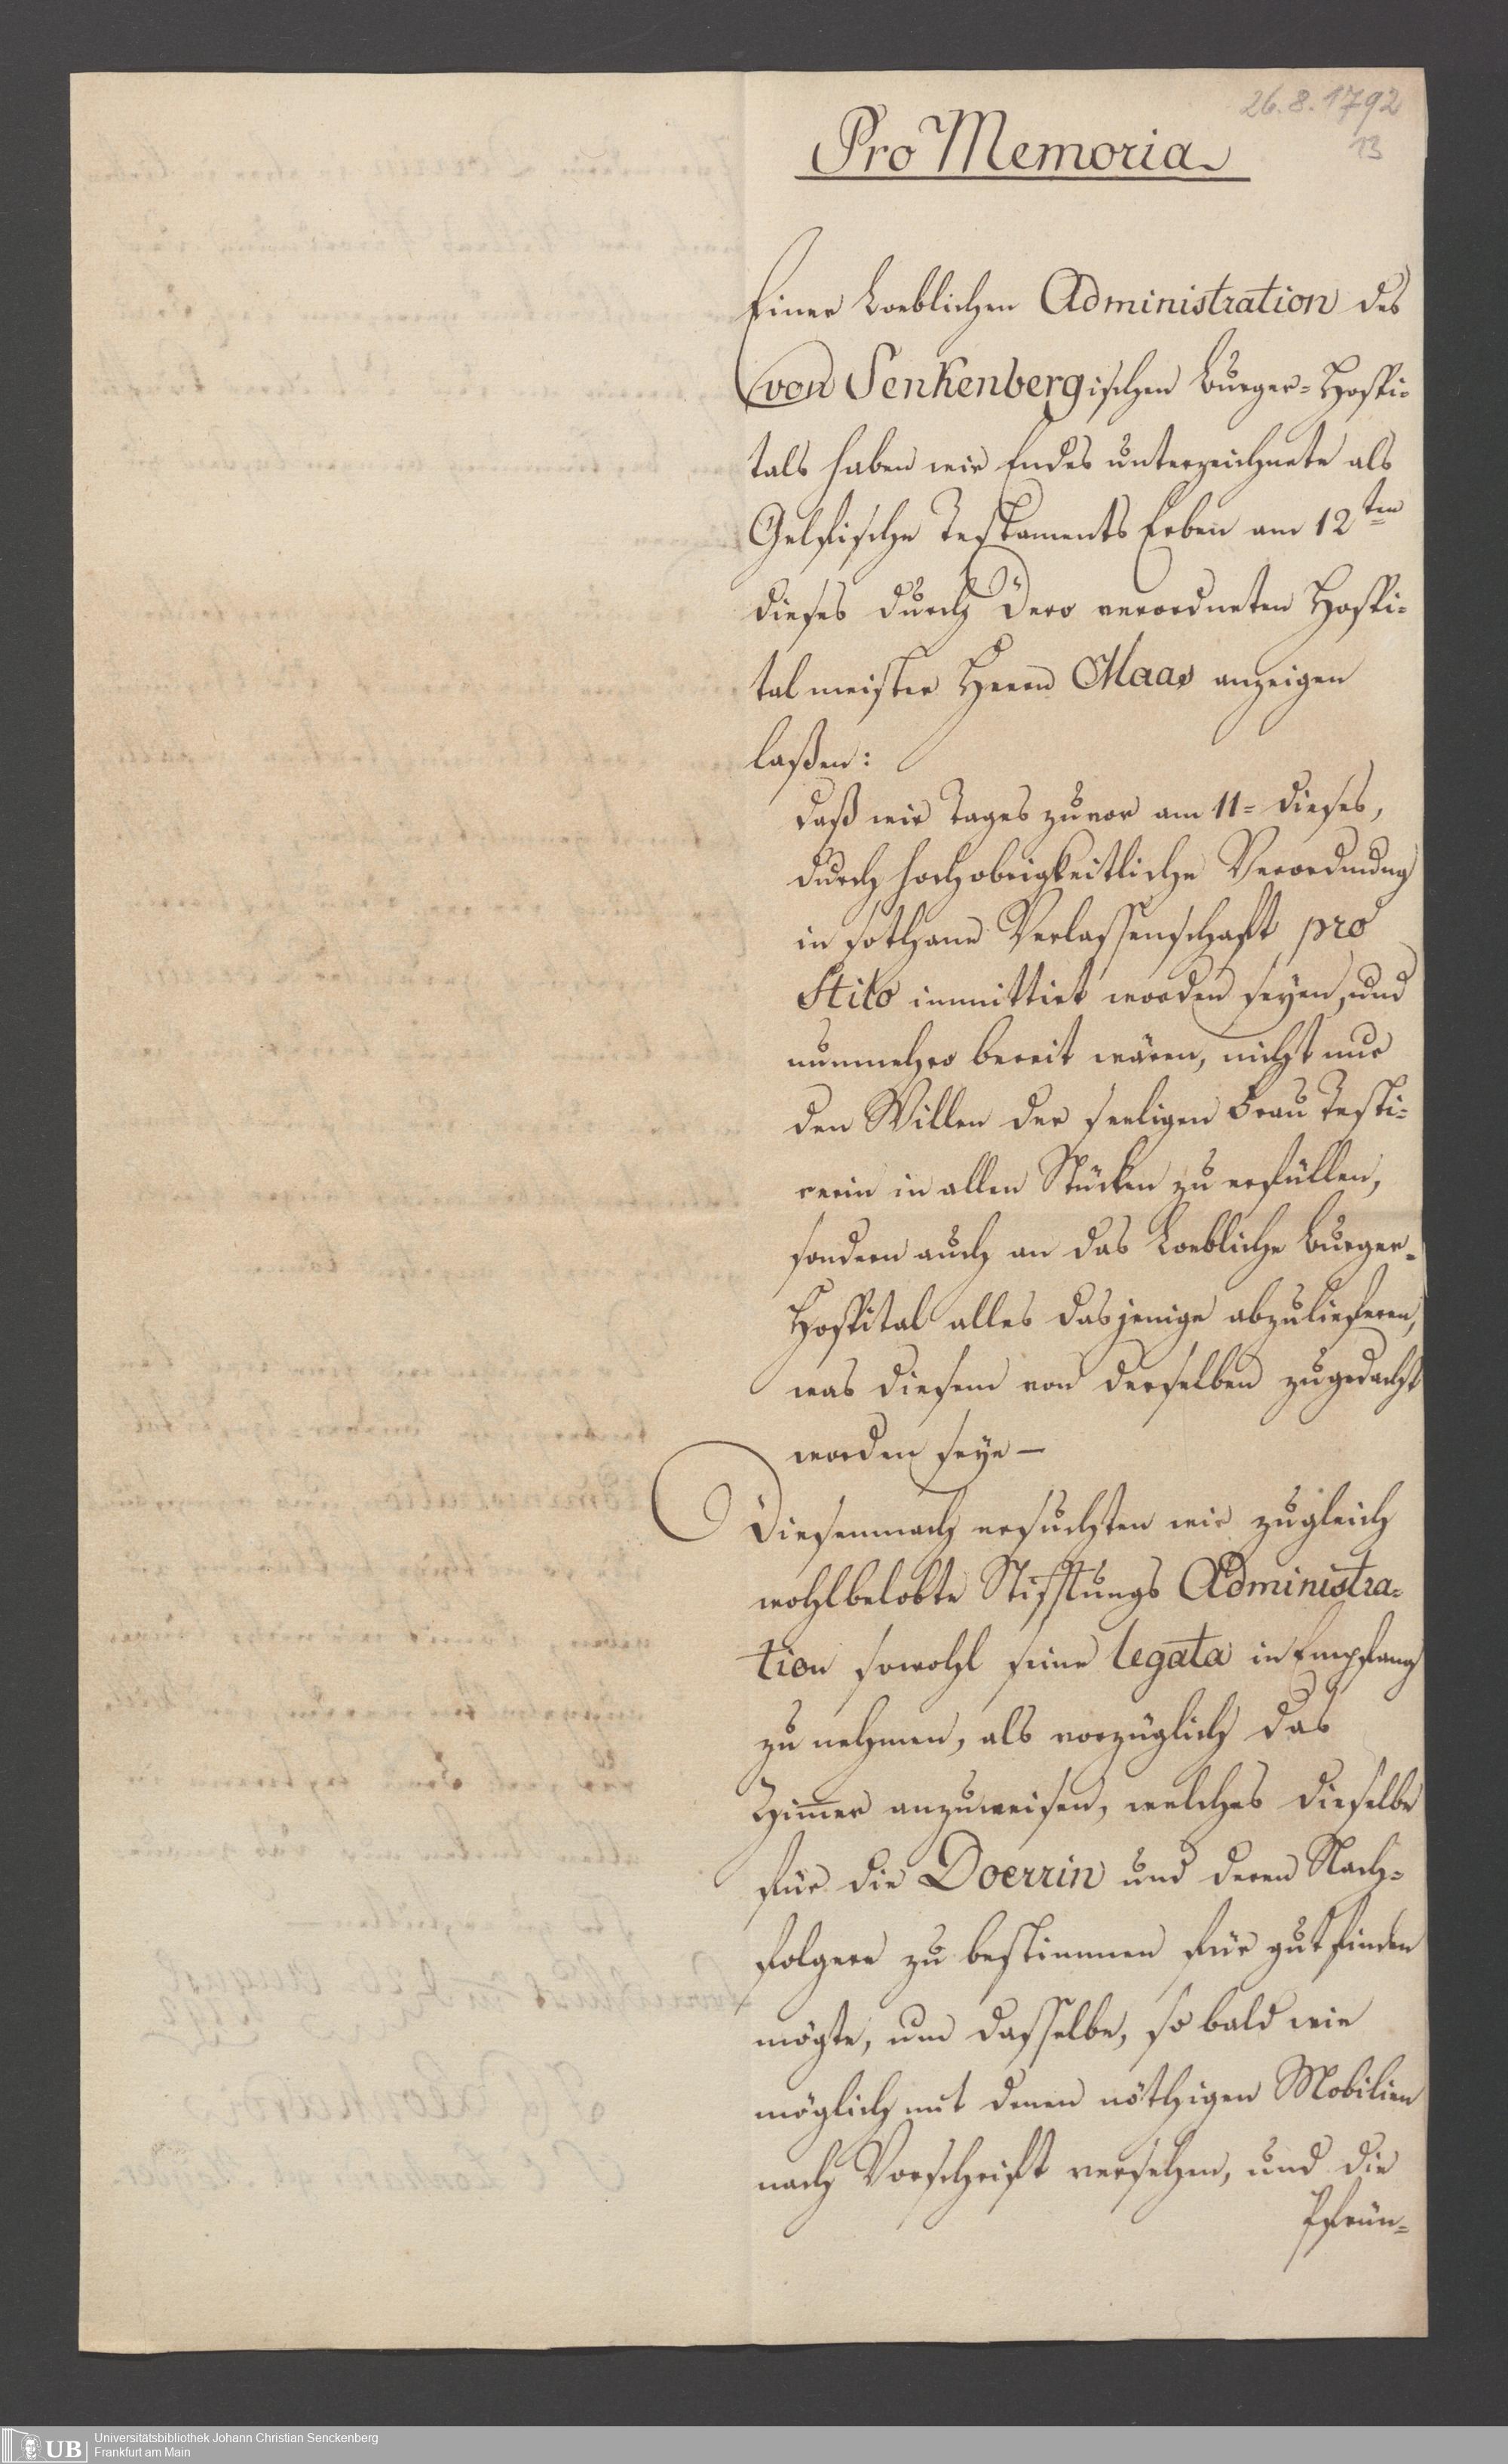 26.8.1792
13
Pro Memoria
Einer Loeblichen Administration des
von Senkenbergischen Burger-Hospi-
tals haben wir Endes unterzeichnete als
Gelfische Testaments Erben am 12ten
dieses durch Dero verordneten Hospi-
talmeister Herrn Maas anzeigen
laßen:
daß wir Tages zuvor am 11= dieses,
durch hochobrigkeitliche Verordnung
in sothane Verlassenschaft pro
Stilo immittirt worden seyen, und
nunmehro bereit wären, nicht nur
den Willen der seeligen Frau Testi-
rerin in allen Stücken zu erfüllen,
sondern auch an das Loebliche Burger-
Hospital alles dasjenige abzulieferen,
was diesem von derselben zugedacht
worden seye —
Diesemnach ersuchten wir zugleich
wohlbelobte Stifftungs Administra-
tion sowohl seine legata in Empfang
zu nehmen, als vorzüglich das
Zimmer anzuweisen, welches dieselbe
für die Doerrin und deren Nach-
folgere zu bestimmen für gut finden
mögte, um dasselbe, so bald wie
möglich mit denen nöthigen Mobilien
nach Vorschrift versehen, und die
Pfrün-
UB
Universitätsbibliothek Johann Christian Senckenberg
Frankfurt am Main